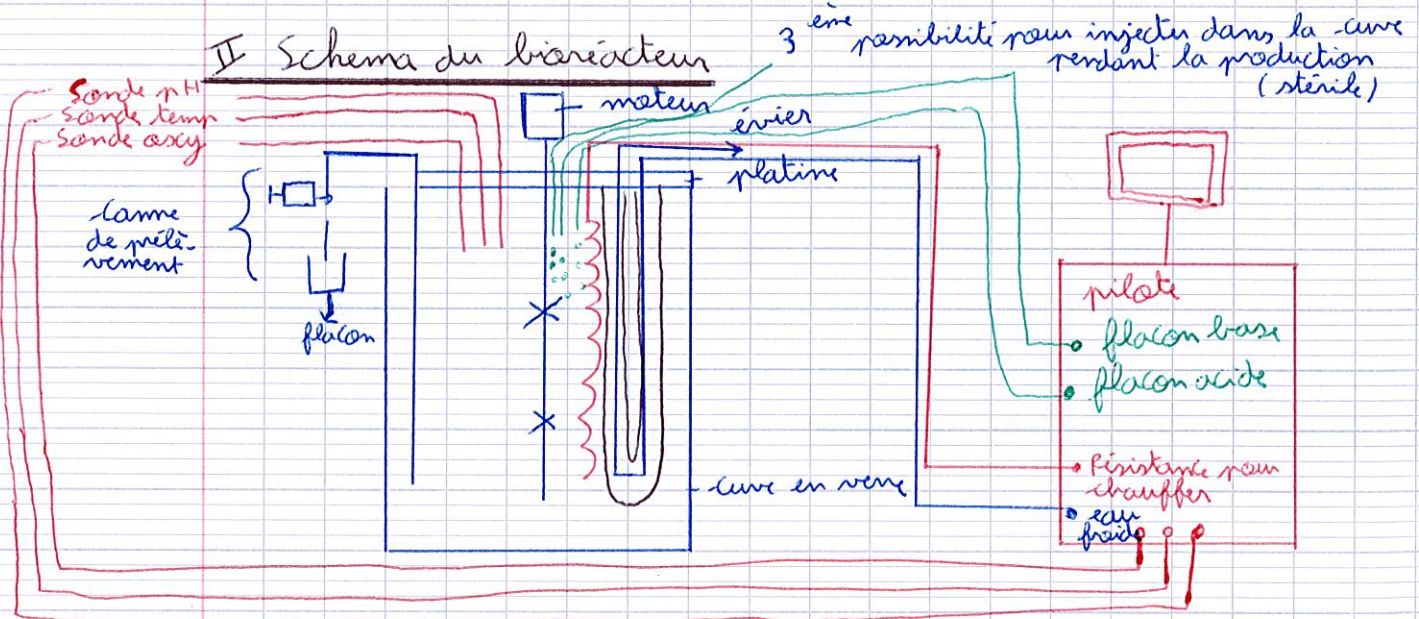 II Schema du bioréacteur
3 ème possibilité pour injecter dans la cuve
pendant la production
(stérile)
Sonde pH
Sonde temp
Sonde oxy
moteur
évier
platine
Canne
de prélè-
vement
flacon
cuve en verre
pilote
flacon base
flacon acide
Résistance pour
chauffer
eau
froide